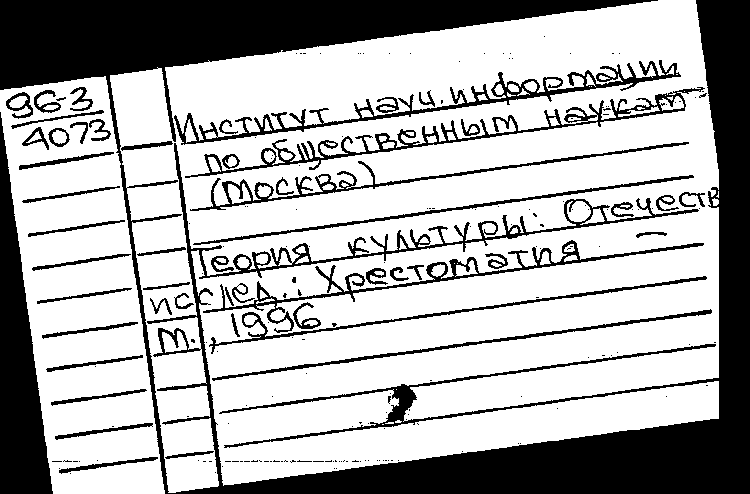 96-3
4073
Институт науч. информации
по общественным наукам
(Москва)
Теория культуры: Отечеств
исслед.: Хрестоматия –
М., 1996.